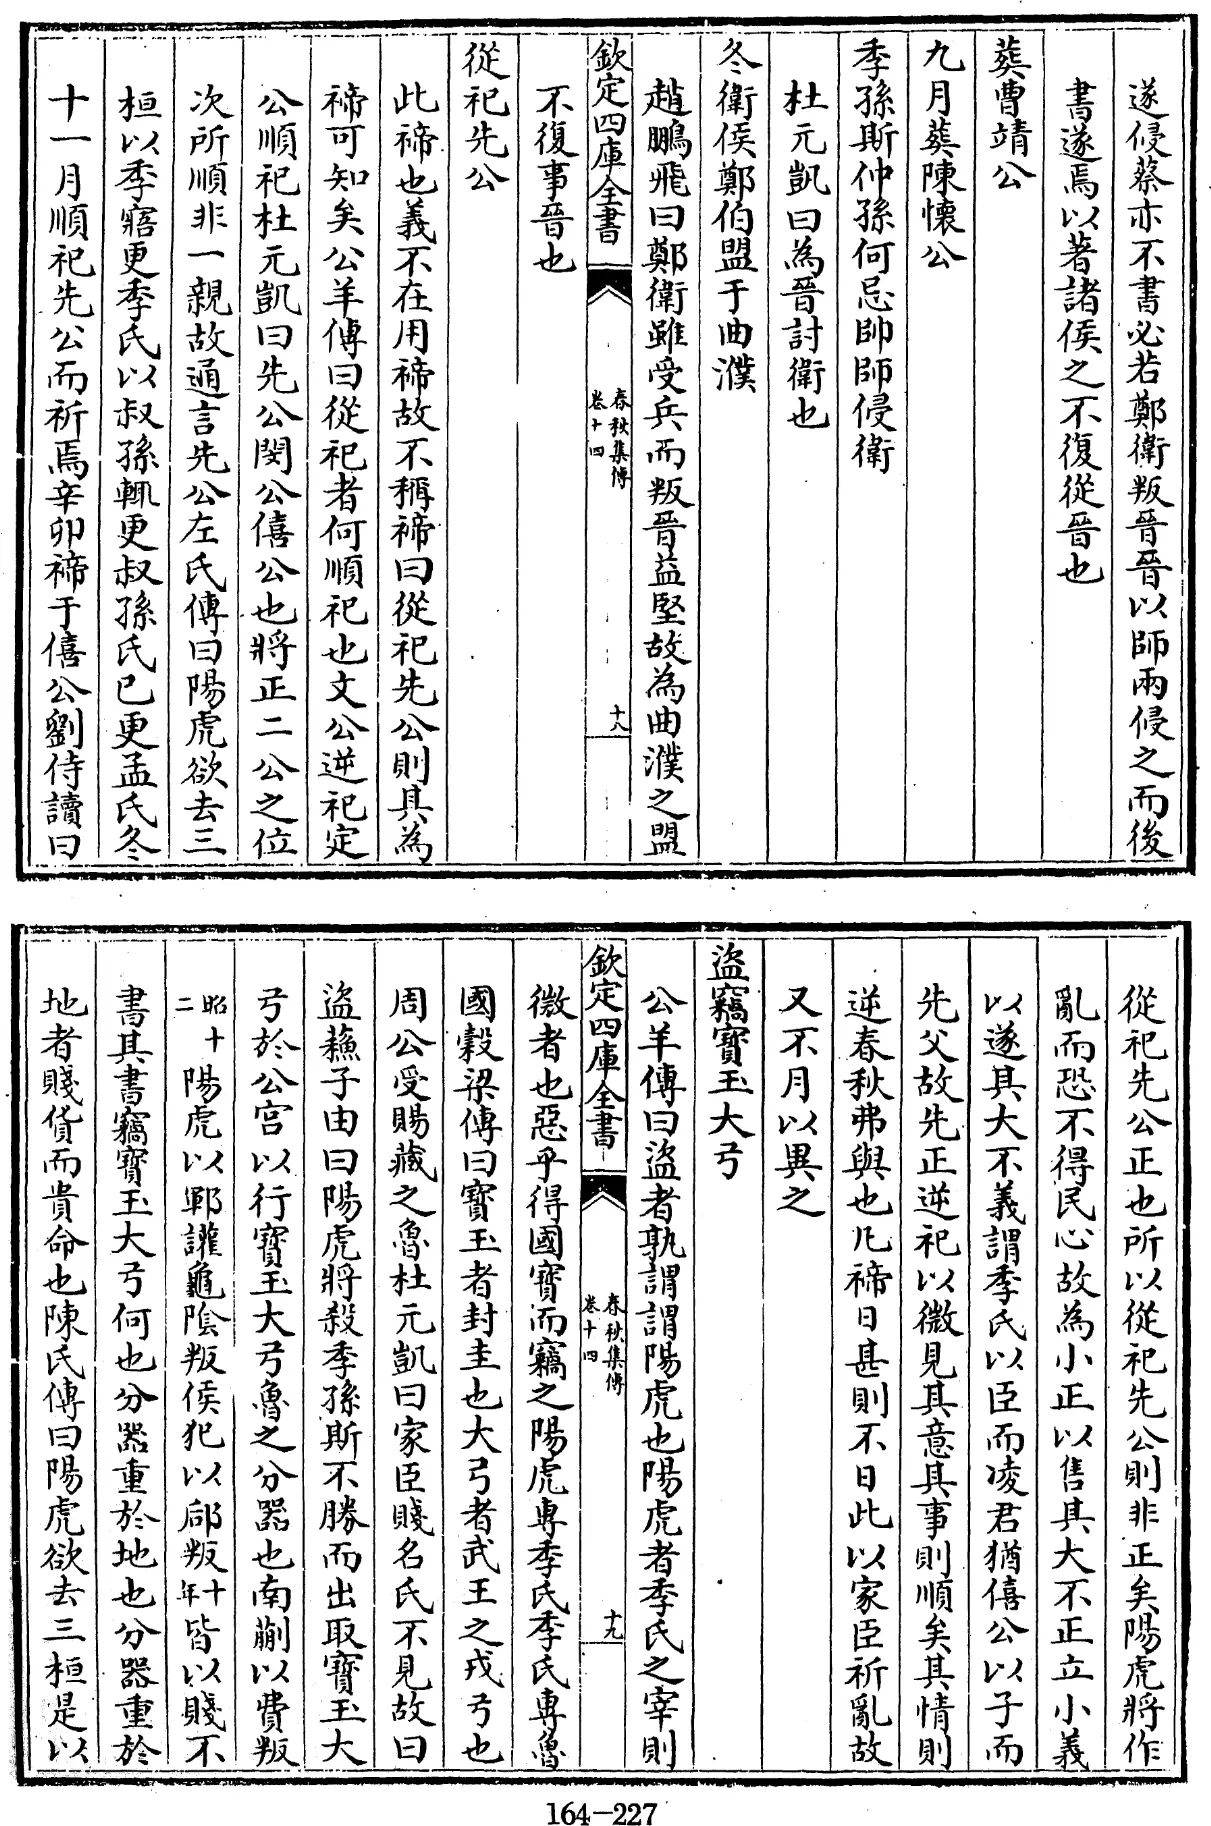 遂侵蔡亦不書必若鄭衛叛晉晉以師兩侵之而後
書遂焉以著諸侯之不復從晉也
葬曹靖公
九月葬陳懷公
季孫斯仲孫何忌帥師侵衛
杜元凱曰為晉討衛也
冬衛侯鄭伯盟于曲濮
趙鵬飛曰鄭衛雖受兵而叛晉益堅故為曲濮之盟
欽定四庫全書
春秋集傳
卷十四
十八
不復事晉也
從祀先公
此禘也義不在用禘故不稱禘曰從祀先公則其為
禘可知矣公羊傳曰從祀者何順祀也文公逆祀定
公順祀杜元凱曰先公閔公僖公也將正二公之位
次所順非一親故通言先公左氏傳曰陽虎欲去三
桓以季寤更季氏以叔孫輒更叔孫氏已更孟氏冬
十一月順祀先公而祈焉辛卯禘于僖公劉侍讀曰
從祀先公正也所以從祀先公則非正矣陽虎將作
亂而恐不得民心故為小正以售其大不正立小義
以遂其大不義謂季氏以臣而凌君猶僖公以子而
先父故先正逆祀以微見其意其事則順矣其情則
逆春秋弗與也凡禘日甚則不日此以家臣祈亂故
又不月以異之
盜竊寶玉大弓
公羊傳曰盜者孰謂謂陽虎也陽虎者季氏之宰則
欽定四庫全書
春秋集傳
卷十四
十九
微者也惡乎得國寶而竊之陽虎專季氏季氏專魯
國穀梁傳曰寶玉者封圭也大弓者武王之戎弓也
周公受賜藏之魯杜元凱曰家臣賤名氏不見故曰
盜蘇子由曰陽虎將殺季孫斯不勝而出取寶玉大
弓於公宮以行寶玉大弓魯之分器也南蒯以費叛
昭十二陽虎以鄆讙龜陰叛侯犯以郈叛十年皆以賤不
書其書竊寶玉大弓何也分器重於地也分器重於
地者賤貨而貴命也陳氏傳曰陽虎欲去三桓是以
164-227